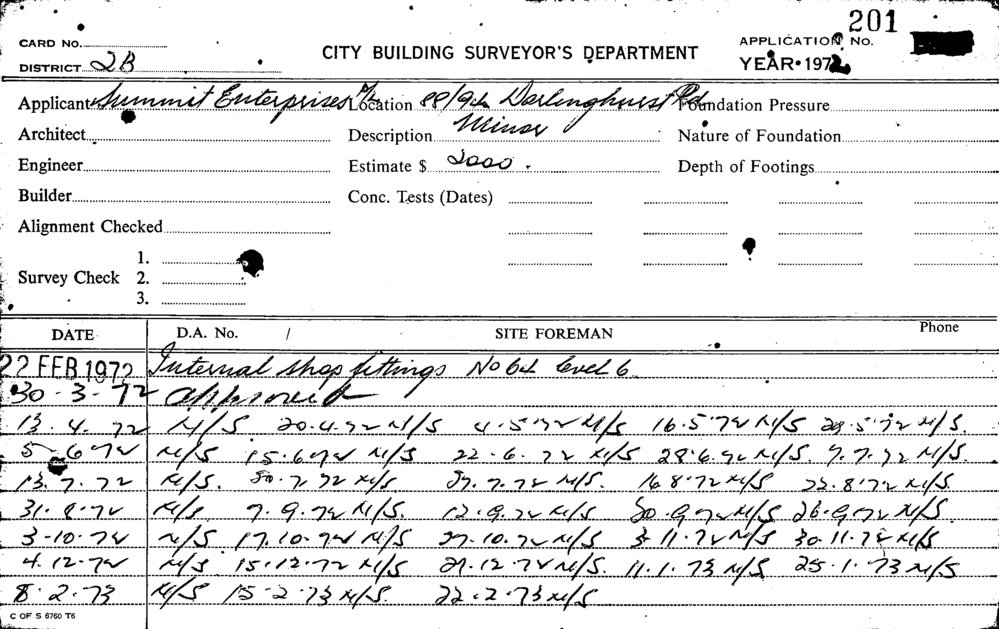 201
CARD NO. APPLICATION No.
DISTRICT 2B CITY BUILDING SURVEYOR'S DEPARTMENT YEAR 1972
Applicant Summit Enterprises P/L Location 88/94 Darlinghurst Rd Foundation Pressure
Architect Description Minor Nature of Foundation
Engineer Estimate $ 2000. Depth of Footings
Builder Conc. Tests (Dates)
Alignment Checked
1.
Survey Check 2.
3.
DATE D.A. No. / SITE FOREMAN Phone
22 FEB 1972 Internal shop fittings No 64 level 6
30-3-72 approved
13.4.72 N/S 20.4.72 N/S 4.5.72 N/S 16.5.72 N/S 28.5.72 N/S.
5-6-72 N/S 15.6.72 N/S 22.6.72 N/S 28.6.72 N/S. 7.7.72 N/S.
13.7.72 N/S. 20.7.72 N/S 27.7.72 N/S. 16.8.72 N/S 22.8.72 N/S
31.8.72 N/S 7.9.72 N/S. 12.9.72 N/S 20.9.72 N/S 26.9.72 N/S
3-10-72 N/S 17.10.72 N/S 27.10.72 N/S 3.11.72 N/S 30.11.72 N/S
4.12.72 N/S 15.12.72 N/S 27.12.72 N/S. 11.1.73 N/S 25.1.73 N/S
8.2.73 N/S 15-2-73 N/S. 22.2.73 N/S
C OF S 6760 T6